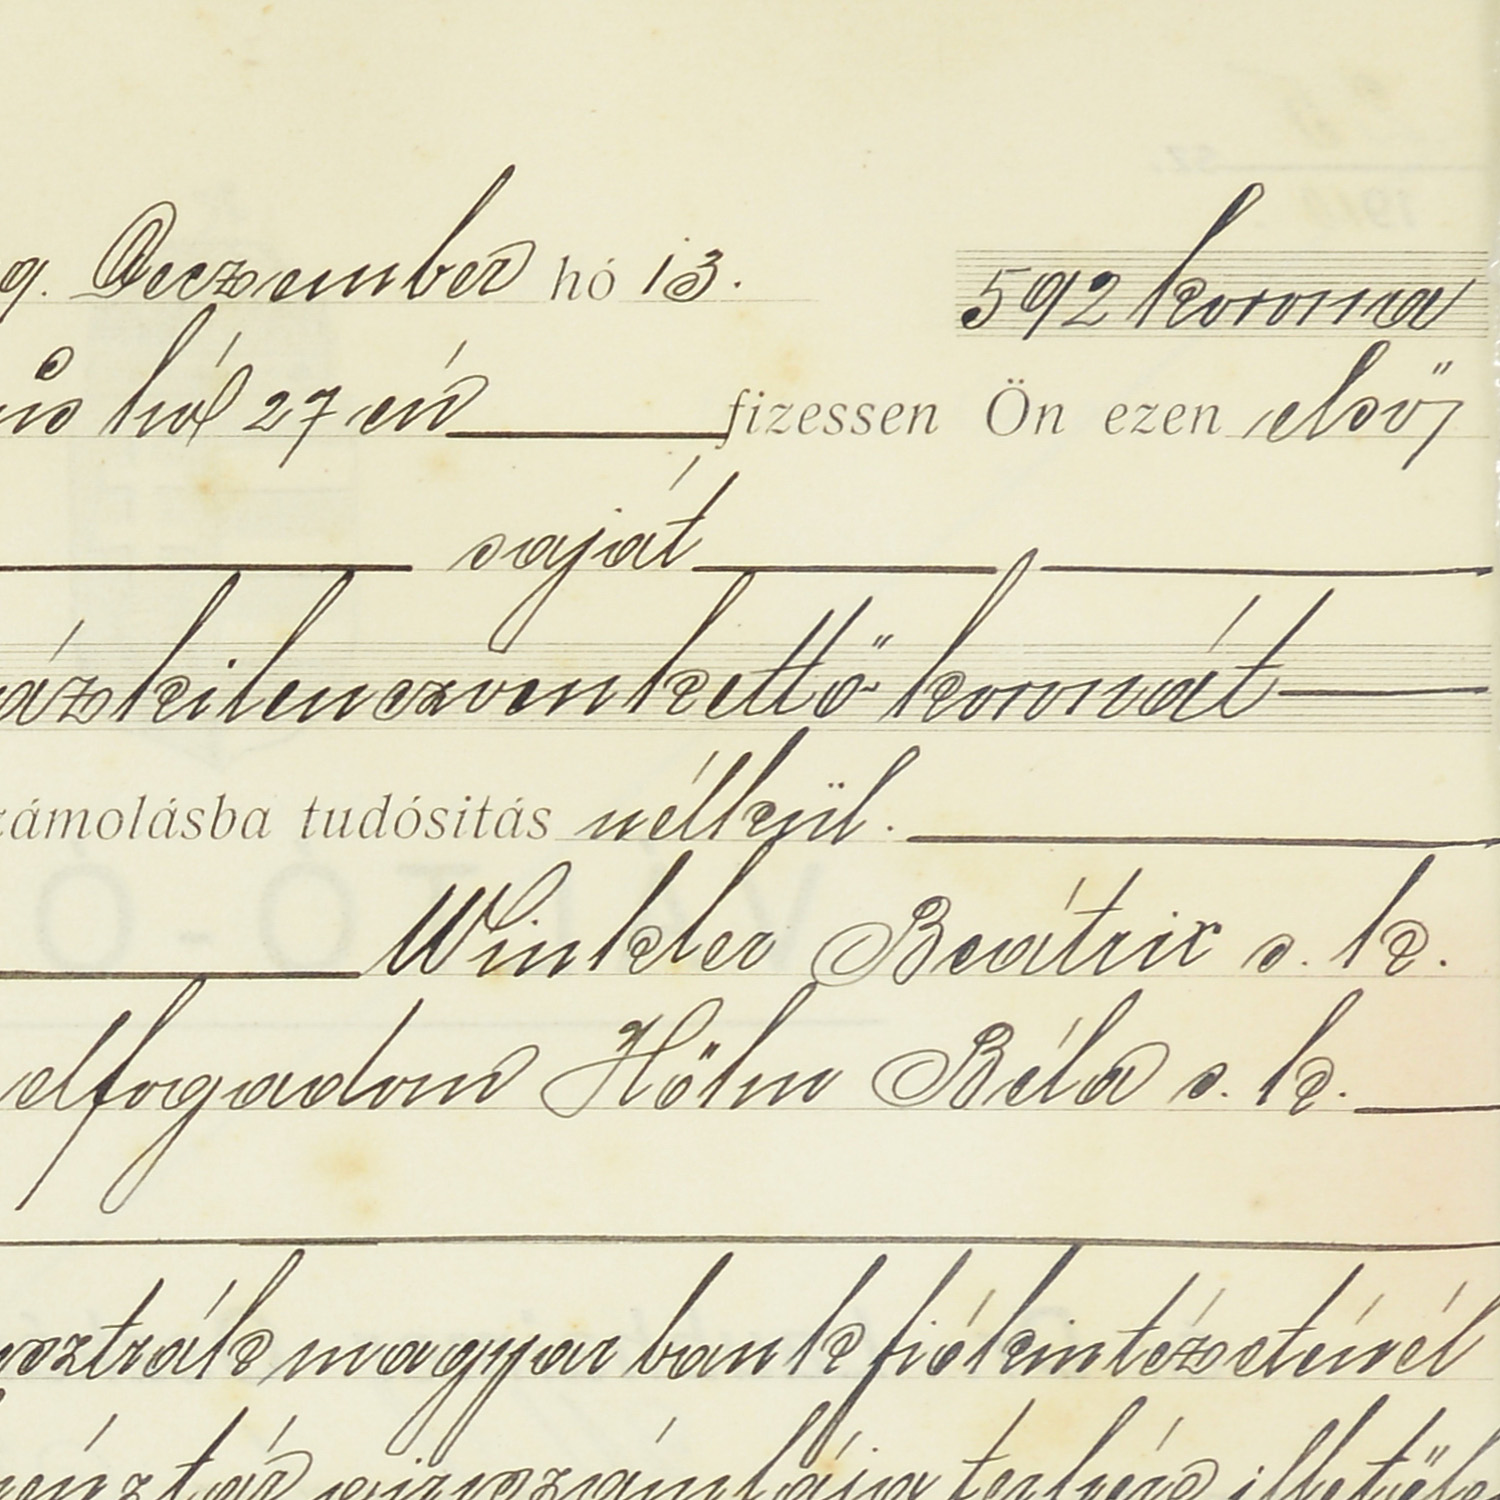 9. Deczember hó 13. 592 korona
hó 27 én fizessen Ön ezen első
saját
áz kilenczvenkettő koronát
számolásba tudósitás nélkül.
Winkler Beátrix s. k.
elfogadom Höhn Béla s. k.
osztrák magyar bank fiókintézeténél